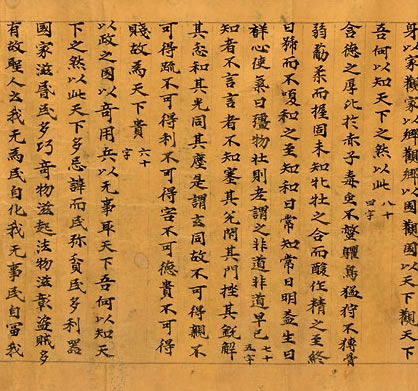 身以家觀家以鄉觀鄉以國觀國以天下觀天下
吾何以知天下之然以此 八十四字
含德之厚比於赤子毒虫不螫鳥猛狩不搏骨
弱筋柔而握固未知牝牡之合而酸作精之至終
日號而不嗄和之至知和日常知常日明益生日
祥心使氣日彊物壯則老謂之非道非道早已 七十五字
知者不言言者不知塞其兌閇其門挫其銳解
其忿和其光同其塵是謂玄同故不可得親不
可得踈不可得利不可得害不可得貴不可得
賤故為天下貴 六十字
以政之國以奇用兵以无事取天下吾何以知天
下之然以此天下多忌諱而民弥貧民多利器
國家滋昏民多巧奇物滋起法物滋彰盜賊多
有故聖人云我无為民自化我无事民自富我